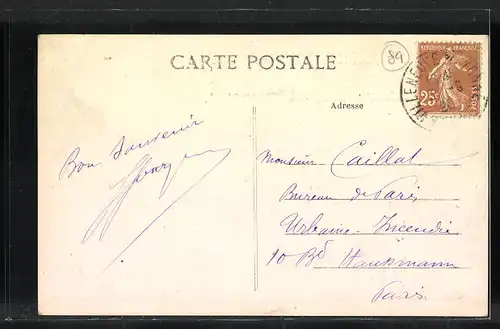 CARTE POSTALE
89
RÉPUBLIQUE FRANÇAISE
25c
POSTES
VILLENEUVE
Adresse
Bon Souvenir
Monsieur Caillat
Bureau de Paris
Urbaine-Incendie
10 Bd Haussmann
Paris